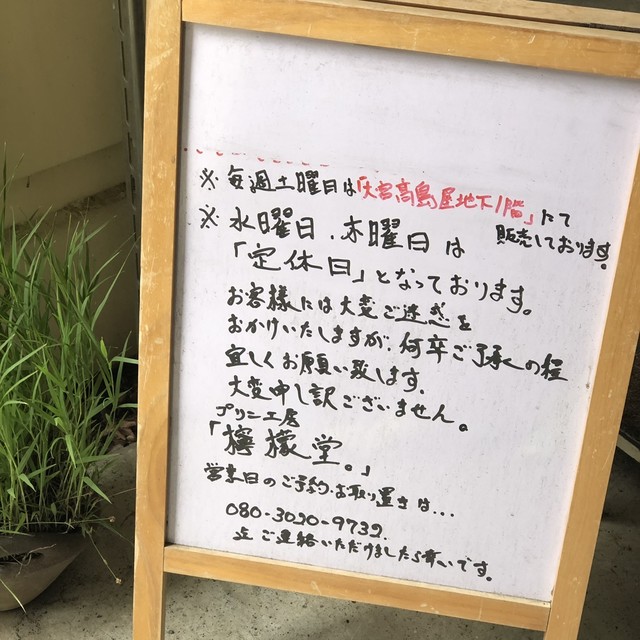 ※ 毎週土曜日は「大宮高島屋地下1階」にて
販売しております。
※ 水曜日、木曜日は
「定休日」となっております。
お客様には大変ご迷惑を
おかけいたしますが、何卒ご了承の程
宜しくお願い致します。
大変申し訳ございません。
プリン工房
「檸檬堂。」
営業日のご予約・お取り置きは...
080-3020-9732.
迄ご連絡いただけましたら幸いです。